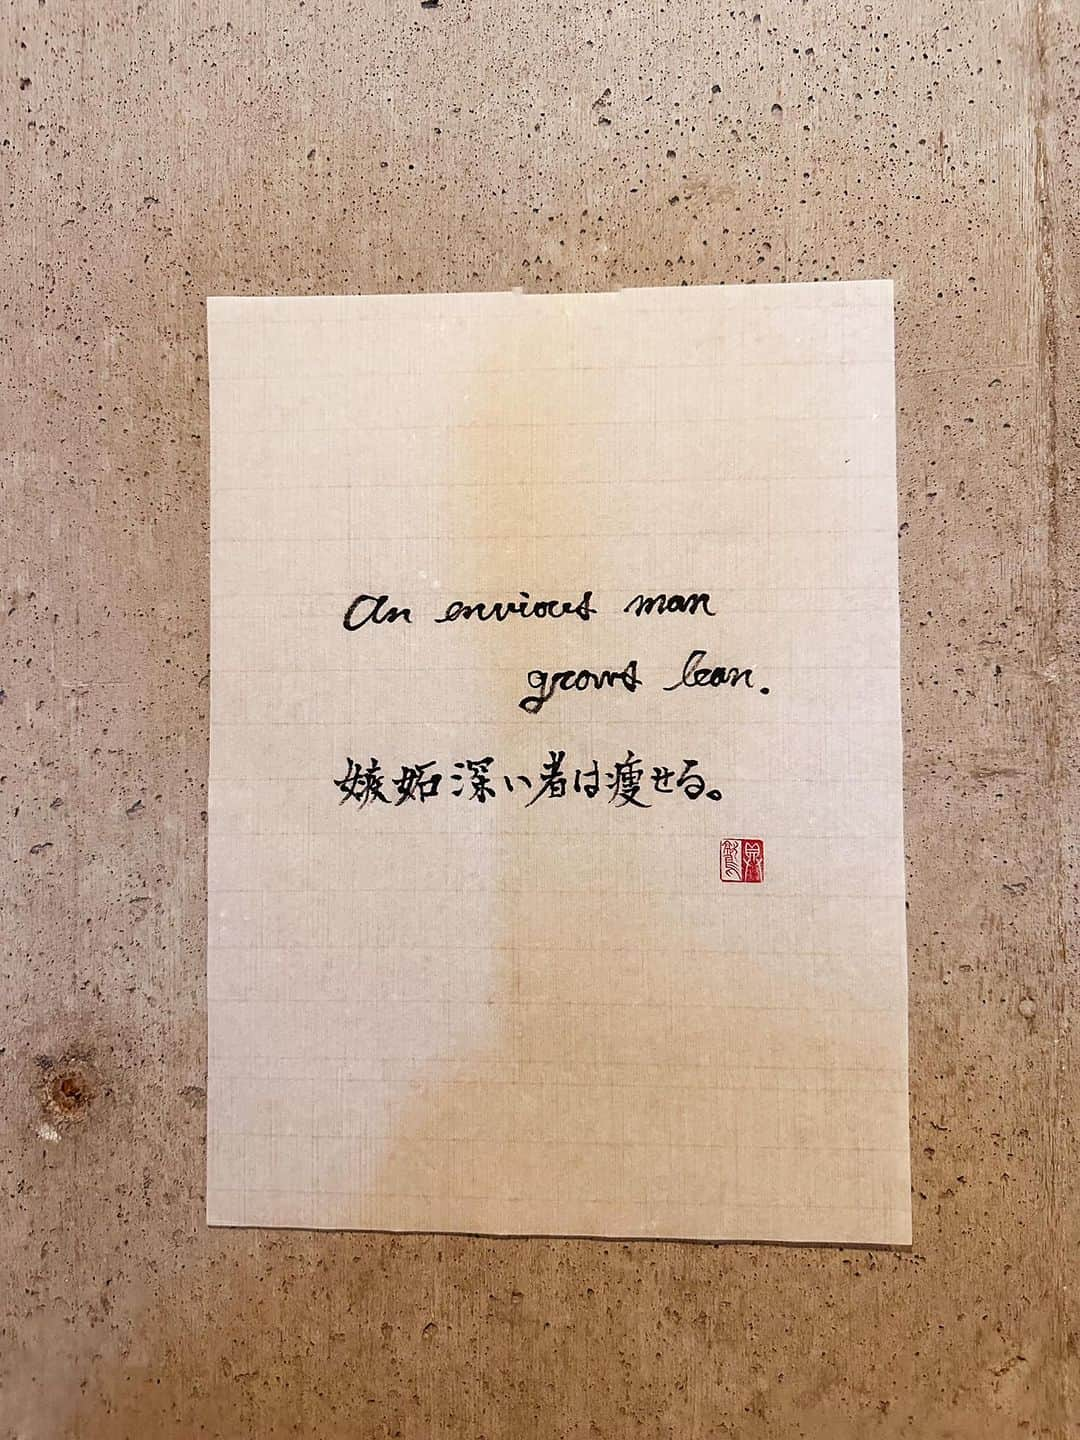 An envious man
grows lean.
嫉妬深い者は痩せる。